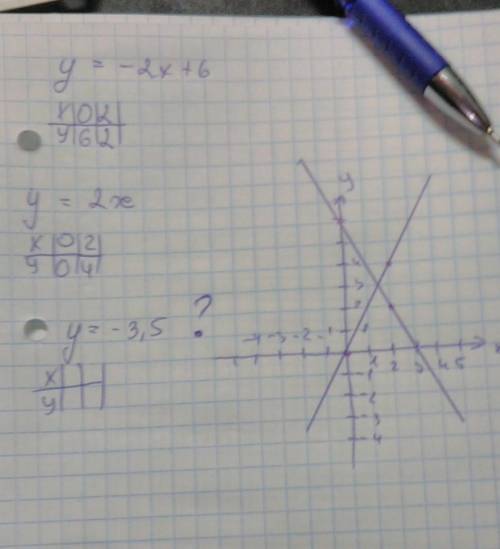 y = -2x+6
x|0|2|
y|6|2|
y = 2x
x|0|2|
y|0|4|
y = -3,5 ?
x| | |
y| | |
y
4
3
2
1
-4 -3 -2 -1 1 2 3 4 5 x
-1
-2
-3
-4